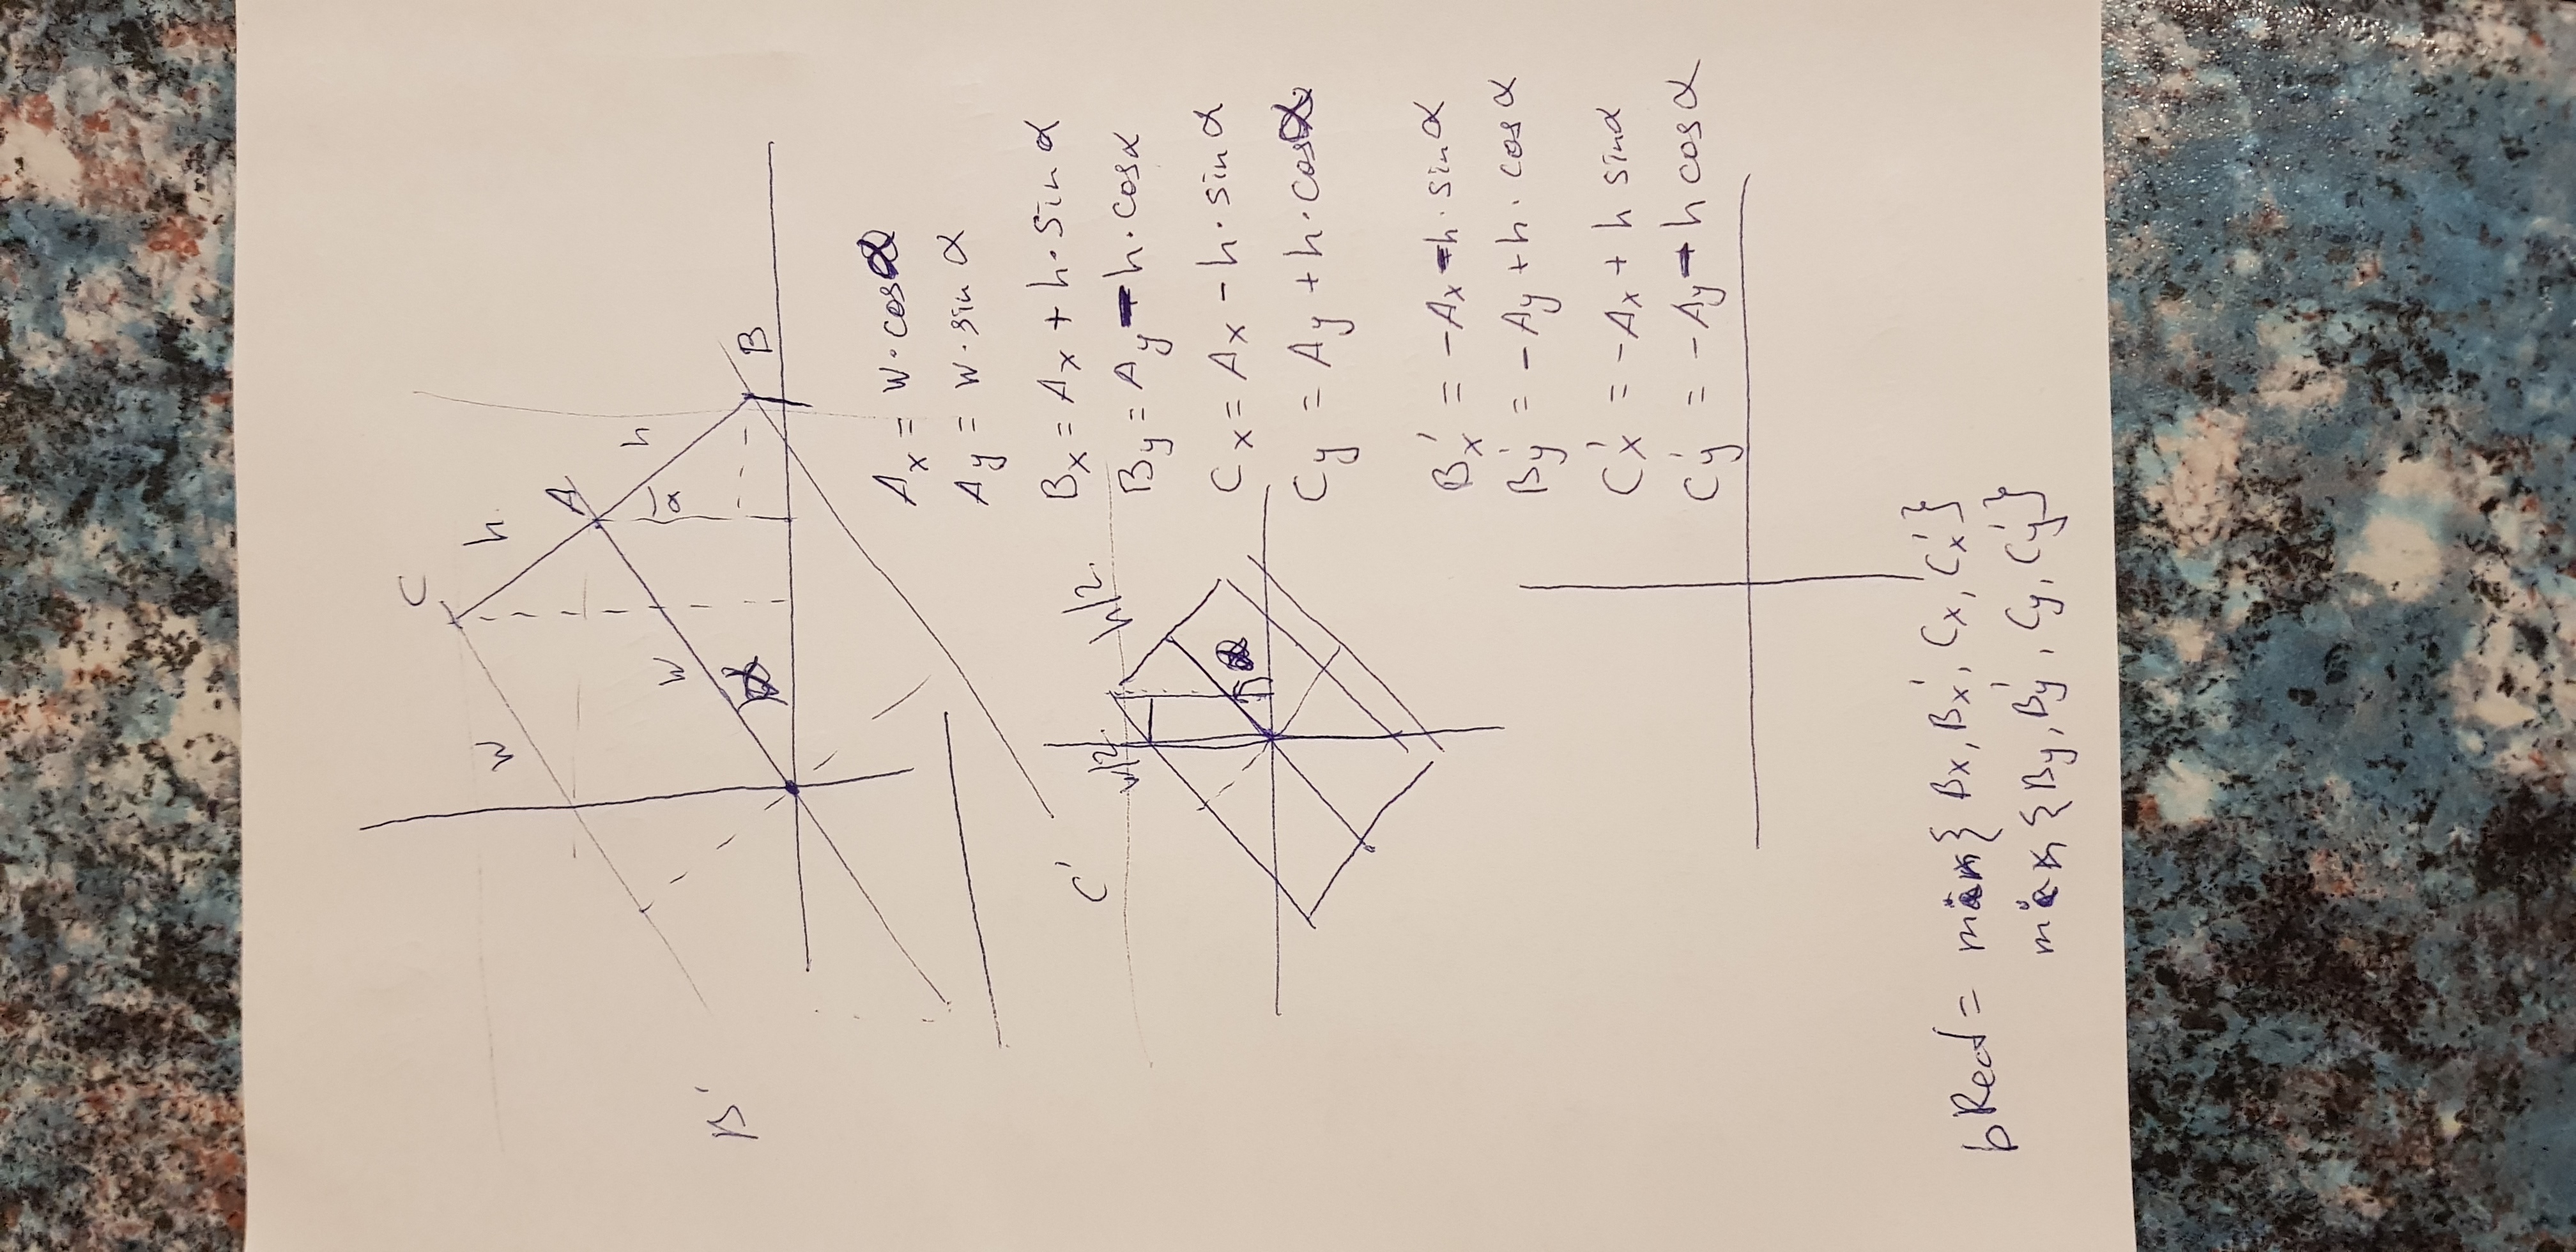 C
w
h
A
w
h
α
B'
α
B
A_x = w·cosα
A_y = w·sin α
B_x = A_x + h·sin α
C'
w/2
h/2
B_y = A_y - h·cosα
C_x = A_x - h·sin α
α
C_y = A_y + h·cosα
B_x' = -A_x - h·sin α
B_y' = -A_y + h·cos α
C_x' = -A_x + h sinα
C_y' = -A_y - h cos α
bRect = {B_x, B_x', C_x, C_x'}
{B_y, B_y', C_y, C_y'}